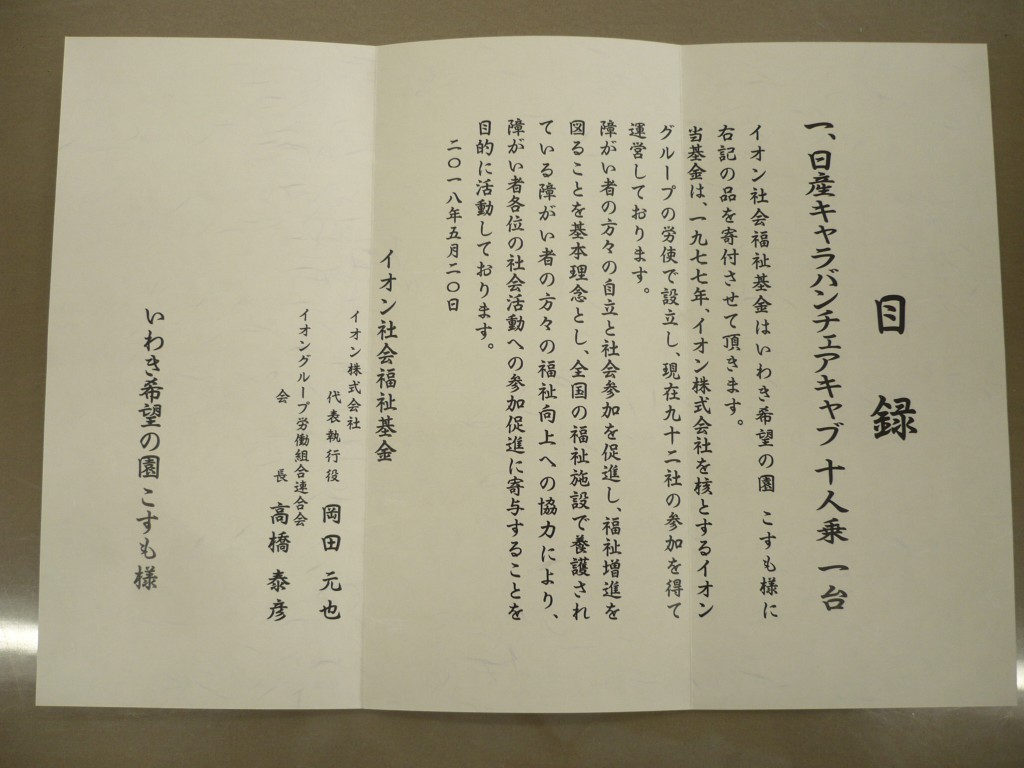 目録
一、日産キャラバンチェアキャブ 十人乗 一台
イオン社会福祉基金はいわき希望の園 こすも様に
右記の品を寄付させて頂きます。
当基金は、一九七七年、イオン株式会社を核とするイオン
グループの労使で設立し、現在九十二社の参加を得て
運営しております。
障がい者の方々の自立と社会参加を促進し、福祉増進を
図ることを基本理念とし、全国の福祉施設で養護され
ている障がい者の方々の福祉向上への協力により、
障がい者各位の社会活動への参加促進に寄与することを
目的に活動しております。
二〇一八年五月二〇日
イオン社会福祉基金
イオン株式会社
代表執行役 岡田 元也
イオングループ労働組合連合会
会長 高橋 泰彦
いわき希望の園こすも様